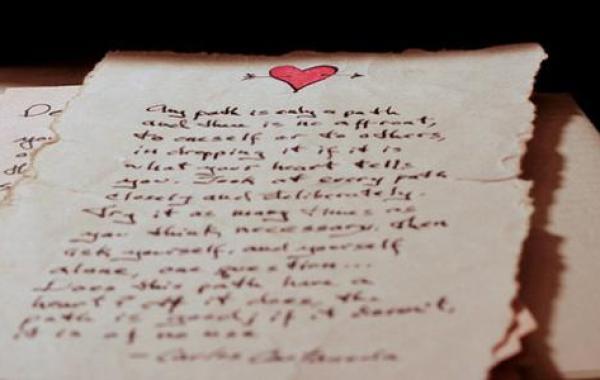 Any path is only a path
and there is no affront,
to oneself or to others,
in dropping it if it is
what your heart tells
you. Look at every path
closely and deliberately.
Try it as many times as
you think necessary. Then
ask yourself, and yourself
alone, one question...
Does this path have a
heart? If it does, the
path is good; if it doesn't,
it is of no use
- Carlos Castaneda
De
you